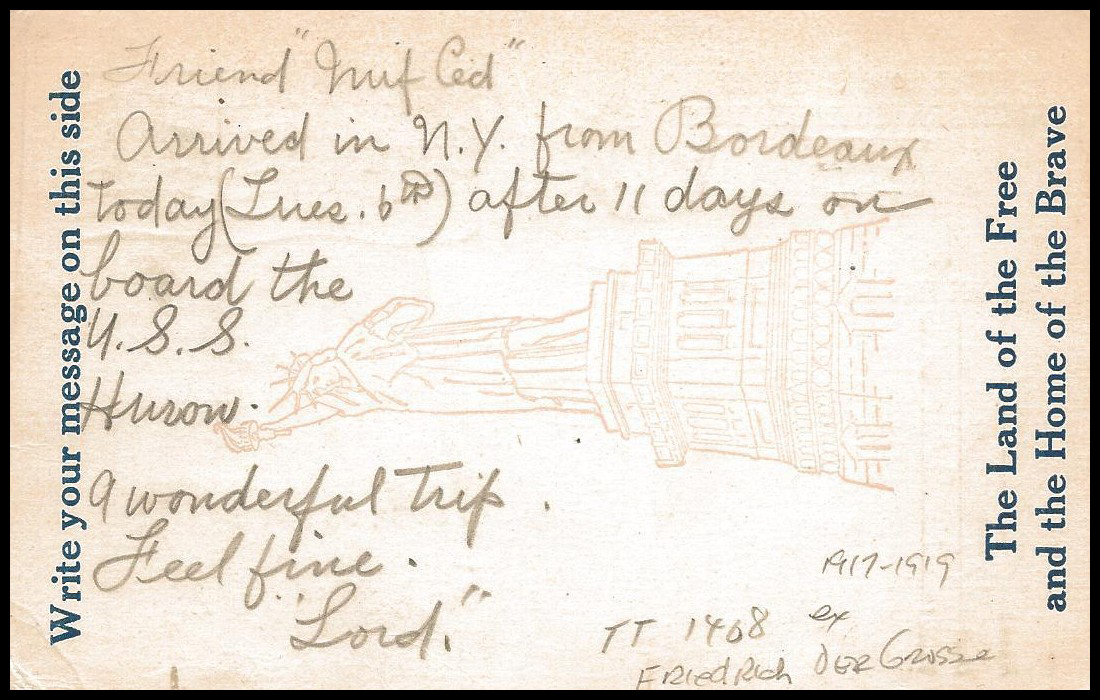 Write your message on this side
Friend "
Arrived in N.Y. from Bordeaux
today (Tues. 6th) after 11 days on
board the
U.S.S.
Huron.
A wonderful trip.
Feel fine.
"Lord."
1917-1919
TT 1408 ex
FRiedRich DER Grosse
The Land of the Free
and the Home of the Brave